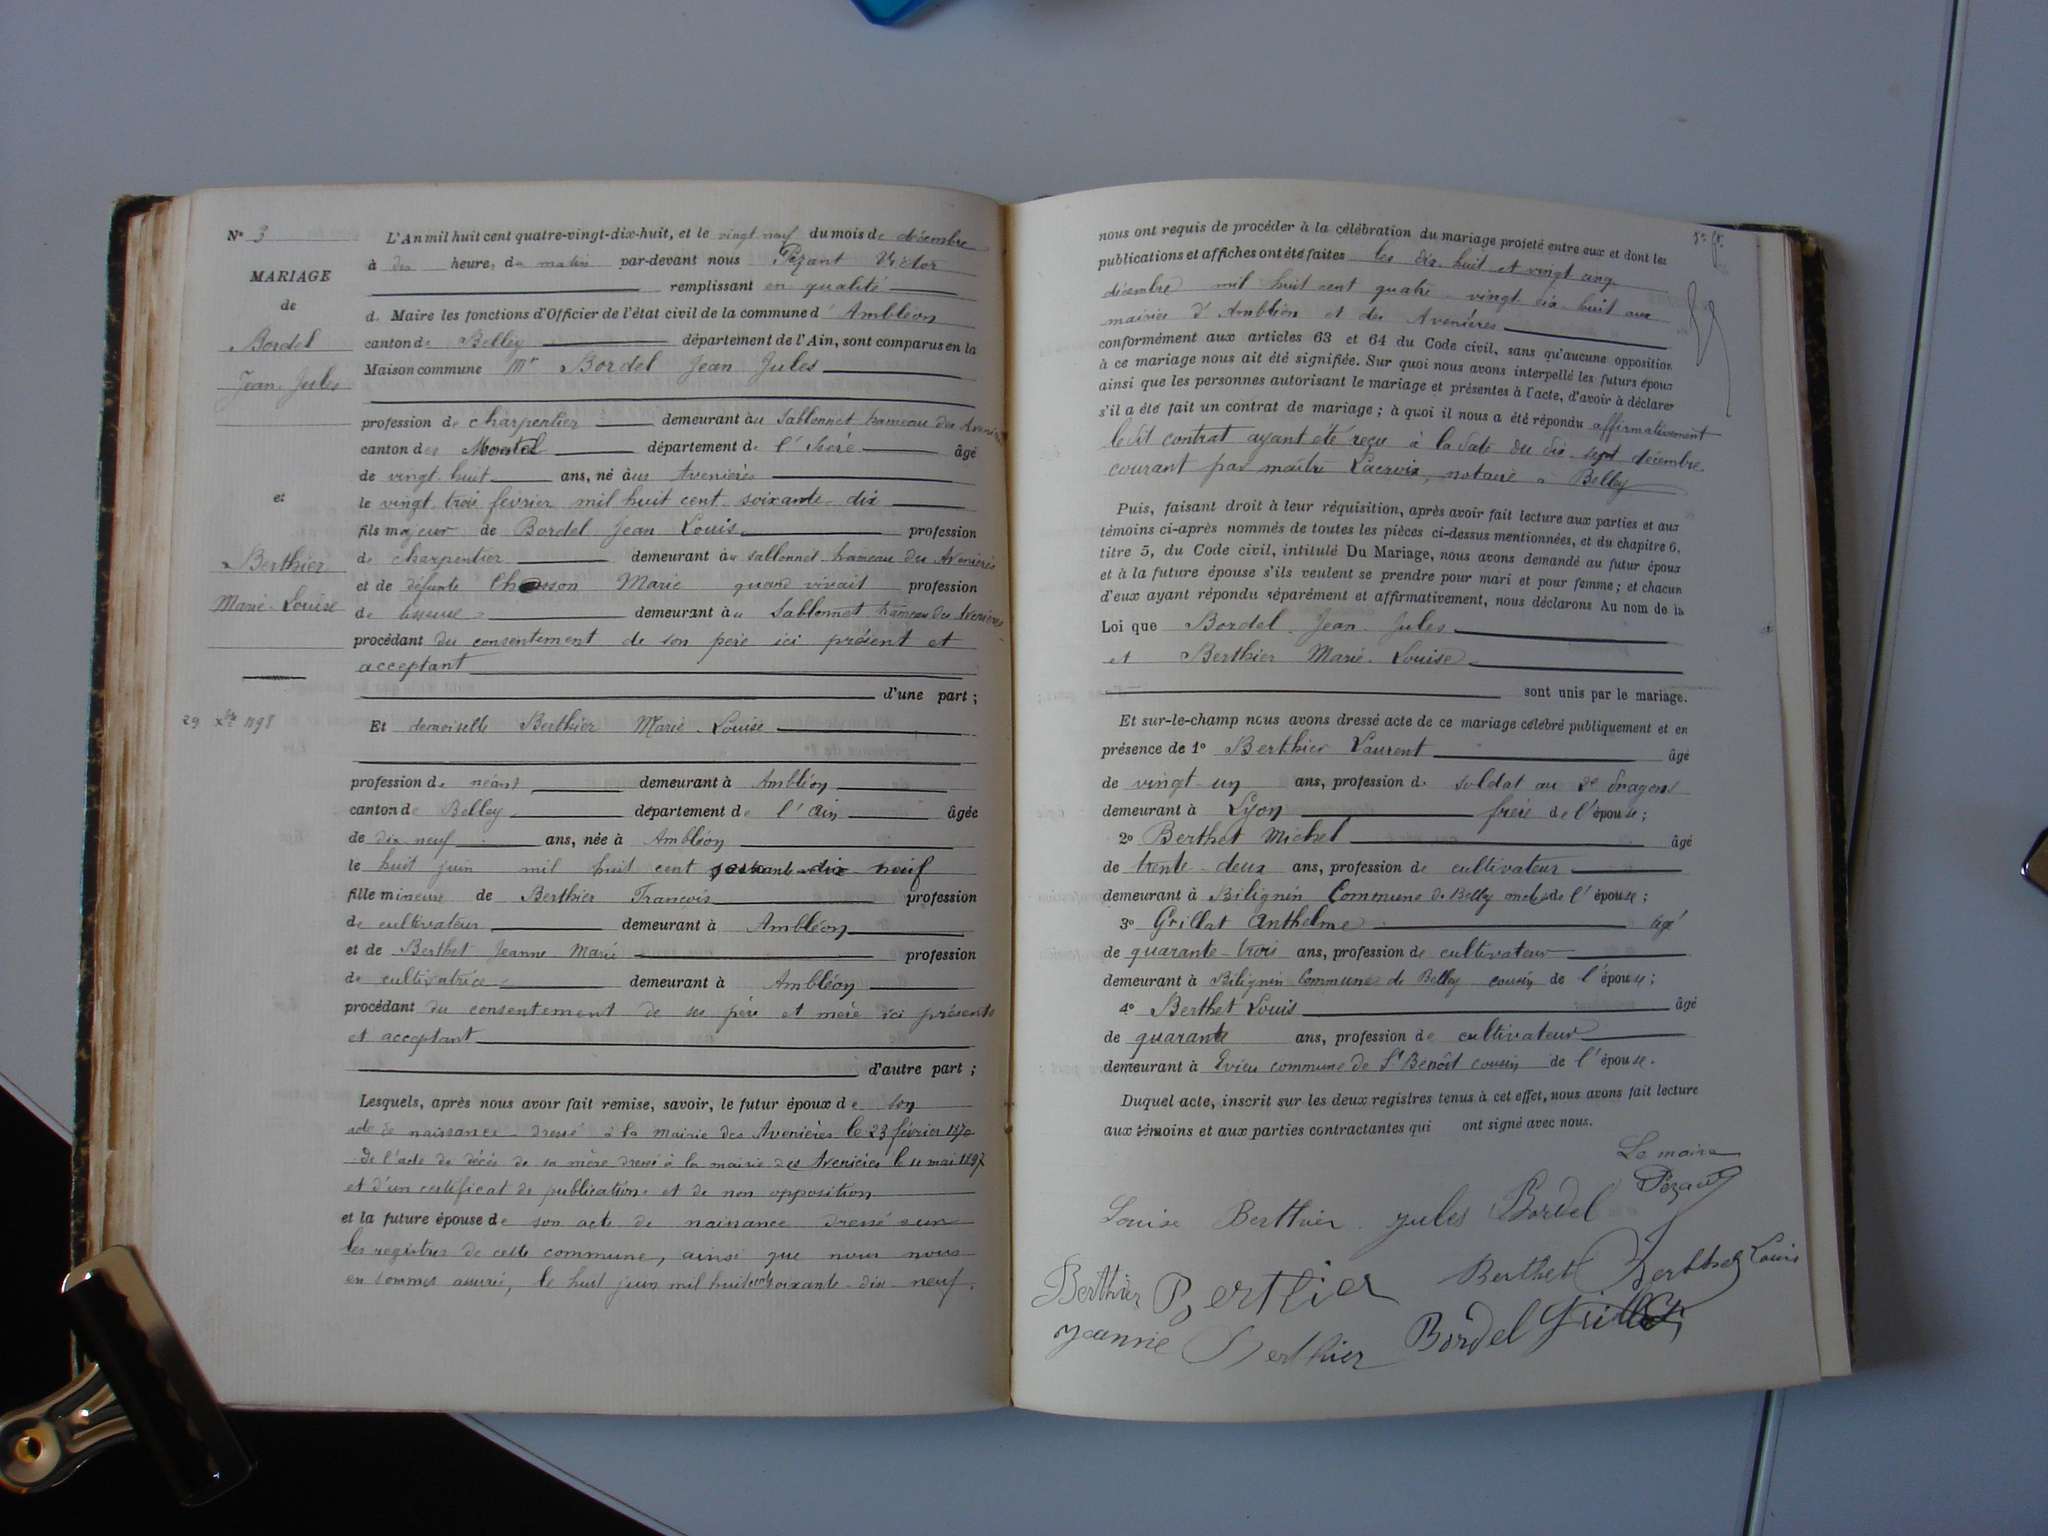 N° 3
MARIAGE
de
Bordel
Jean Jules
et
Berthier
Marie-Louise
29 Xbre 1898
L'An mil huit cent quatre-vingt-dix-huit, et le vingt neuf du mois de décembre
à dix heures du matin par-devant nous Pezant Victor
remplissant en qualité
de Maire les fonctions d'Officier de l'état civil de la commune d'Ambléon
canton de Belley département de l'Ain, sont comparus en la
Maison commune Mr Bordel Jean Jules
profession de charpentier demeurant au Sablonnet hameau des Avenières
canton de département de l'Isère âgé
de vingt-huit ans, né aux Avenières
le vingt trois février mil huit cent soixante-dix
fils majeur de Bordel Jean Louis profession
de charpentier demeurant au Sablonnet hameau des Avenières
et de défunte Marie quand vivait profession
de demeurant au Sablonnet hameau des Avenières
procédant du consentement de son père ici présent et
acceptant
d'une part ;
Et demoiselle Berthier Marie-Louise
profession de néant demeurant à Ambléon
canton de Belley département de l'Ain âgée
de dix neuf ans, née à Ambléon
le huit juin mil huit cent soixante-dix-neuf
fille mineure de Berthier François profession
de cultivateur demeurant à Ambléon
et de Berthet Jeanne Marie profession
de cultivatrice demeurant à Ambléon
procédant du consentement de ses père et mère ici présents
et acceptant
d'autre part ;
Lesquels, après nous avoir fait remise, savoir, le futur époux de son
acte de naissance dressé à la mairie des Avenières le 23 février 1870
de l'acte de décès de sa mère dressé à la mairie des Avenières le 11 mai 1897
et d'un certificat de publications et de non opposition
et la future épouse de son acte de naissance dressé sur
les registres de cette commune, ainsi que nous nous
en sommes assuré, le huit juin mil huit cent soixante-dix-neuf.
nous ont requis de procéder à la célébration du mariage projeté entre eux et dont les
publications et affiches ont été faites les dix huit et vingt cinq
décembre mil huit cent quatre-vingt dix-huit aux
mairies d'Ambléon et des Avenières
conformément aux articles 63 et 64 du Code civil, sans qu'aucune opposition
à ce mariage nous ait été signifiée. Sur quoi nous avons interpellé les futurs époux
ainsi que les personnes autorisant le mariage et présentes à l'acte, d'avoir à déclarer
s'il a été fait un contrat de mariage ; à quoi il nous a été répondu affirmativement
le dit contrat ayant été reçu à la date du dix-sept décembre
courant par maître Lacroix, notaire à Belley
Puis, faisant droit à leur réquisition, après avoir fait lecture aux parties et aux
témoins ci-après nommés de toutes les pièces ci-dessus mentionnées, et du chapitre 6,
titre 5, du Code civil, intitulé Du Mariage, nous avons demandé au futur époux
et à la future épouse s'ils veulent se prendre pour mari et pour femme ; et chacun
d'eux ayant répondu séparément et affirmativement, nous déclarons Au nom de la
Loi que Bordel Jean Jules
et Berthier Marie-Louise
sont unis par le mariage.
Et sur-le-champ nous avons dressé acte de ce mariage célébré publiquement et en
présence de 1° Berthier Laurent âgé
de vingt-un ans, profession de soldat au 2e dragons
demeurant à Lyon frère de l'épouse ;
2° Berthet Michel âgé
de trente-deux ans, profession de cultivateur
demeurant à Bilignin Commune de Belley oncle de l'épouse ;
3° Grillat Anthelme âgé
de quarante-trois ans, profession de cultivateur
demeurant à Bilignin Commune de Belley cousin de l'épouse ;
4° Berthet Louis âgé
de quarante ans, profession de cultivateur
demeurant à Evieu commune de St Benoît cousin de l'épouse.
Duquel acte, inscrit sur les deux registres tenus à cet effet, nous avons fait lecture
aux témoins et aux parties contractantes qui ont signé avec nous.
Le maire
Pezant
Louise Berthier Jules Bordel
Berthier Berthier Berthet Berthet Louis
Jeannie Berthier Bordel Grillat